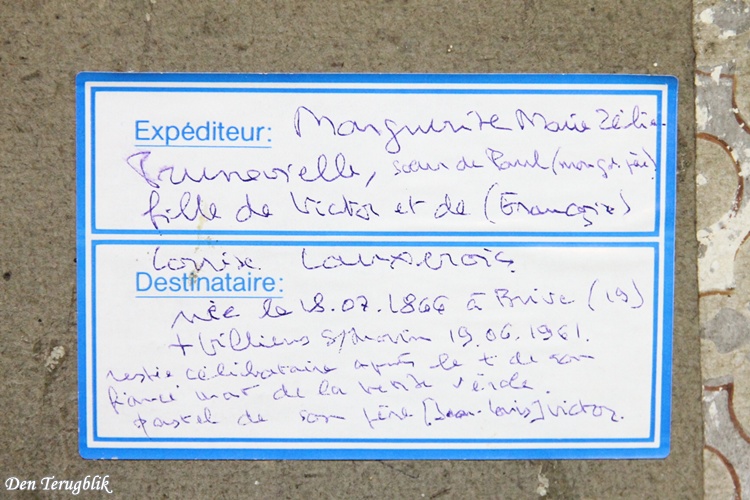 Expéditeur: Marguerite Marie Zélie
Prunevielle, sœur de Paul (mon gd père)
fille de Victor et de (Françoise)
Louise
Destinataire:
née le 18.07.1866 à Brive (19)
+ Villiers s/Morin 19.06.1961.
restée célibataire après le + de son
fiancé mort de la petite vérole.
pastel de son père [Jean-Louis] Victor.
Den Terugblik